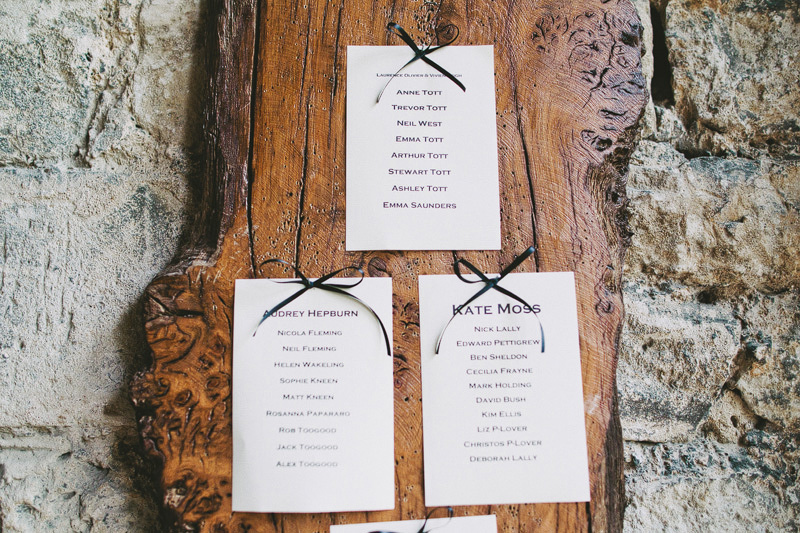 Laurence Olivier & Vivien Leigh
Anne Tott
Trevor Tott
Neil West
Emma Tott
Arthur Tott
Stewart Tott
Ashley Tott
Emma Saunders
Audrey Hepburn
Nicola Fleming
Neil Fleming
Helen Wakeling
Sophie Kneen
Matt Kneen
Rosanna Papararo
Rob Toogood
Jack Toogood
Alex Toogood
Kate Moss
Nick Lally
Edward Pettigrew
Ben Sheldon
Cecilia Frayne
Mark Holding
David Bush
Kim Ellis
Liz P-Lover
Christos P-Lover
Deborah Lally